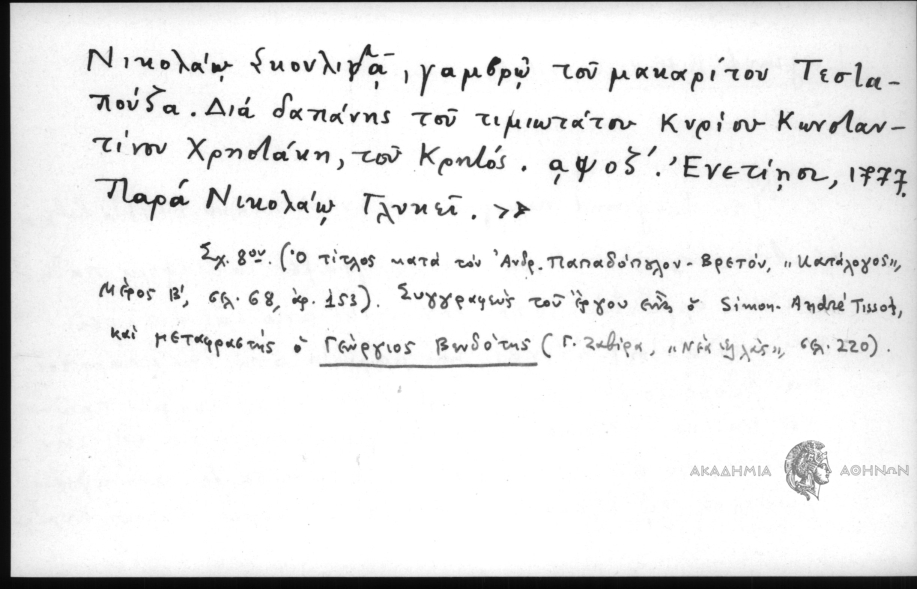 Νικολάῳ Σκουλιφᾷ, γαμβρῷ τοῦ μακαρίτου Τεστα-
πούζα. Διά δαπάνης τοῦ τιμιωτάτου Κυρίου Κωνσταν-
τίνου Χρηστάκη, τοῦ Κρητός. αψοζ΄. Ἐνετίῃσι, 1777.
Παρά Νικολάῳ Γλυκεῖ. »
Σχ. 8ον. (Ὁ τίτλος κατά τόν Ἀνδρ. Παπαδόπουλον-Βρετόν, „Κατάλογος",
Μέρος Β', σελ. 68, ἀρ. 153). Συγγραφεύς τοῦ ἔργου εἶναι ὁ Simon-André Tissot,
καί μεταφραστής ὁ Γεώργιος Βενδότης (Γ. Ζαβίρα, „Νέα Ἑλλάς", σελ. 220).
ΑΚΑΔΗΜΙΑ ΑΘΗΝΩΝ